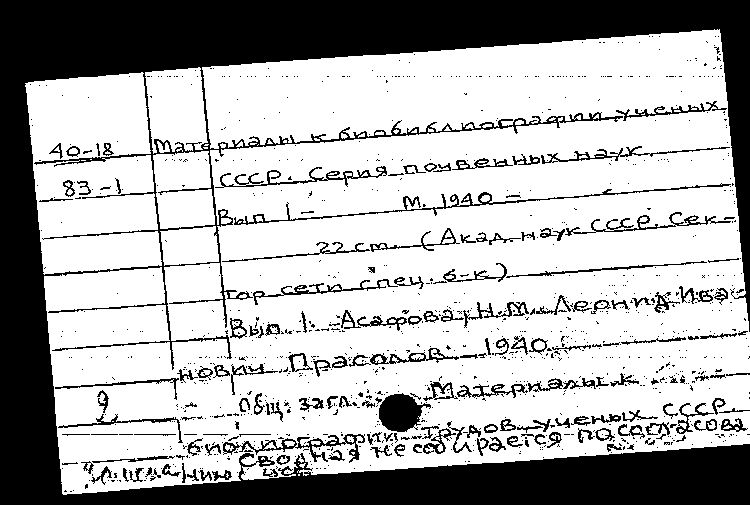 40-18 Материалы к биобиблиографии ученых
83-1 СССР. Серия почвенных наук
Вып 1 - М., 1940 -
22 cm. (Акад. наук СССР. Сек-
тор сети спец. б-к)
Вып. 1. Асафова, Н.М. Леонид Ива-
нович Прасолов. 1940.
2 Общ. загл.: Материалы к
библиографии трудов ученых СССР
Сводная не собирается по согласова